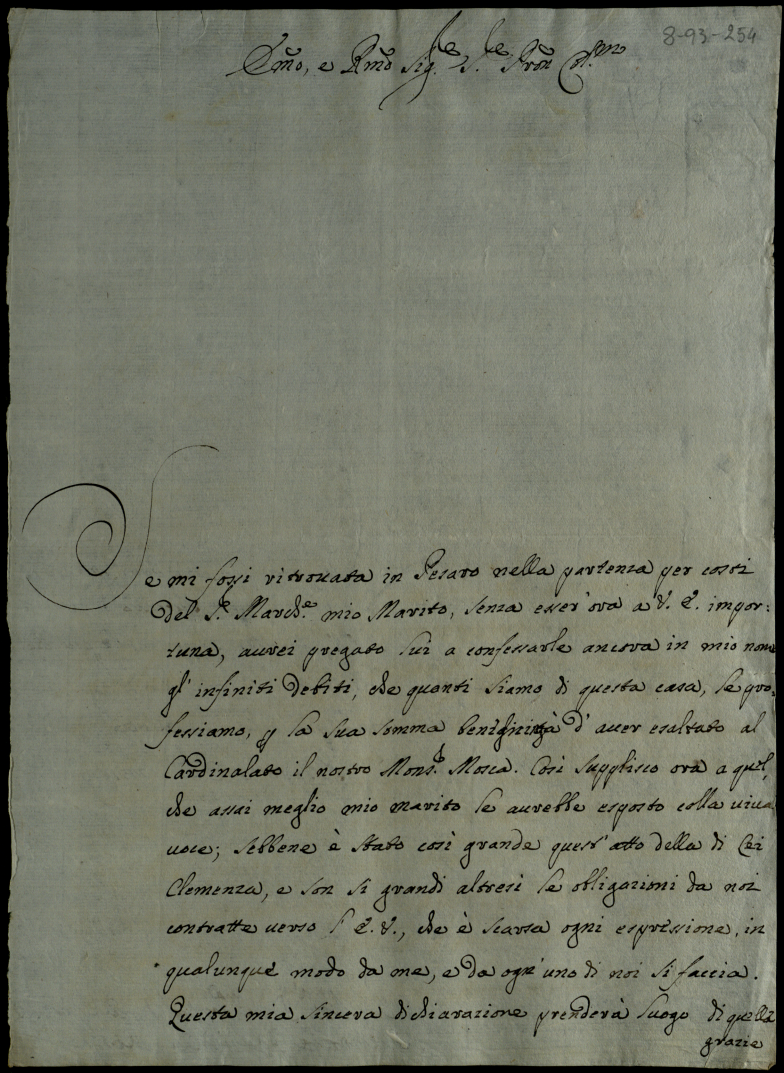 8-93-254
Emo, e Rmo Sig.re S.re Pron Col.mo
Se mi fossi ritrouata in Pesaro nella partenza per costì
del S.r March.e mio Marito, senza esser'ora a V. E. impor=
tuna, aurei pregato lui a confessarle ancora in mio nome
gl'infiniti debiti, che quanti siamo di questa casa, le pro=
fessiamo, p la sua somma benignità d'auer esaltato al
Cardinalato il nostro Mons.r Mosca. Così supplisco ora a quel,
che assai meglio mio marito le aurebbe esposto colla uiua
uoce; sebbene è stato così grande quest'atto della di Lei
Clemenza, e son si grandi altresì le obligazioni da noi
contratte uerso l'E.V., che è scarsa ogni espressione, in
qualunque modo da me, e da ogn'uno di noi si faccia.
Questa mia sincera dichiarazione prenderà luogo di quella
grazie